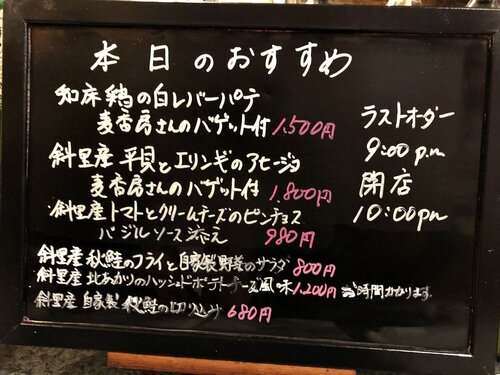 本日のおすすめ
知床鶏の白レバーパテ
麦香房さんのバゲット付 1,500円
斜里産 平貝とエリンギのアヒージョ
麦香房さんのバゲット付 1,800円
斜里産 トマトとクリームチーズのピンチョス
バジルソース添え 980円
斜里産 秋鮭のフライと自家製野菜のサラダ 800円
斜里産 北あかりのハッシュドポテトチーズ風味 1,200円 お時間かかります
斜里産 自家製 秋鮭の切り込み 680円
ラストオーダー
9:00 p.m
閉店
10:00pm